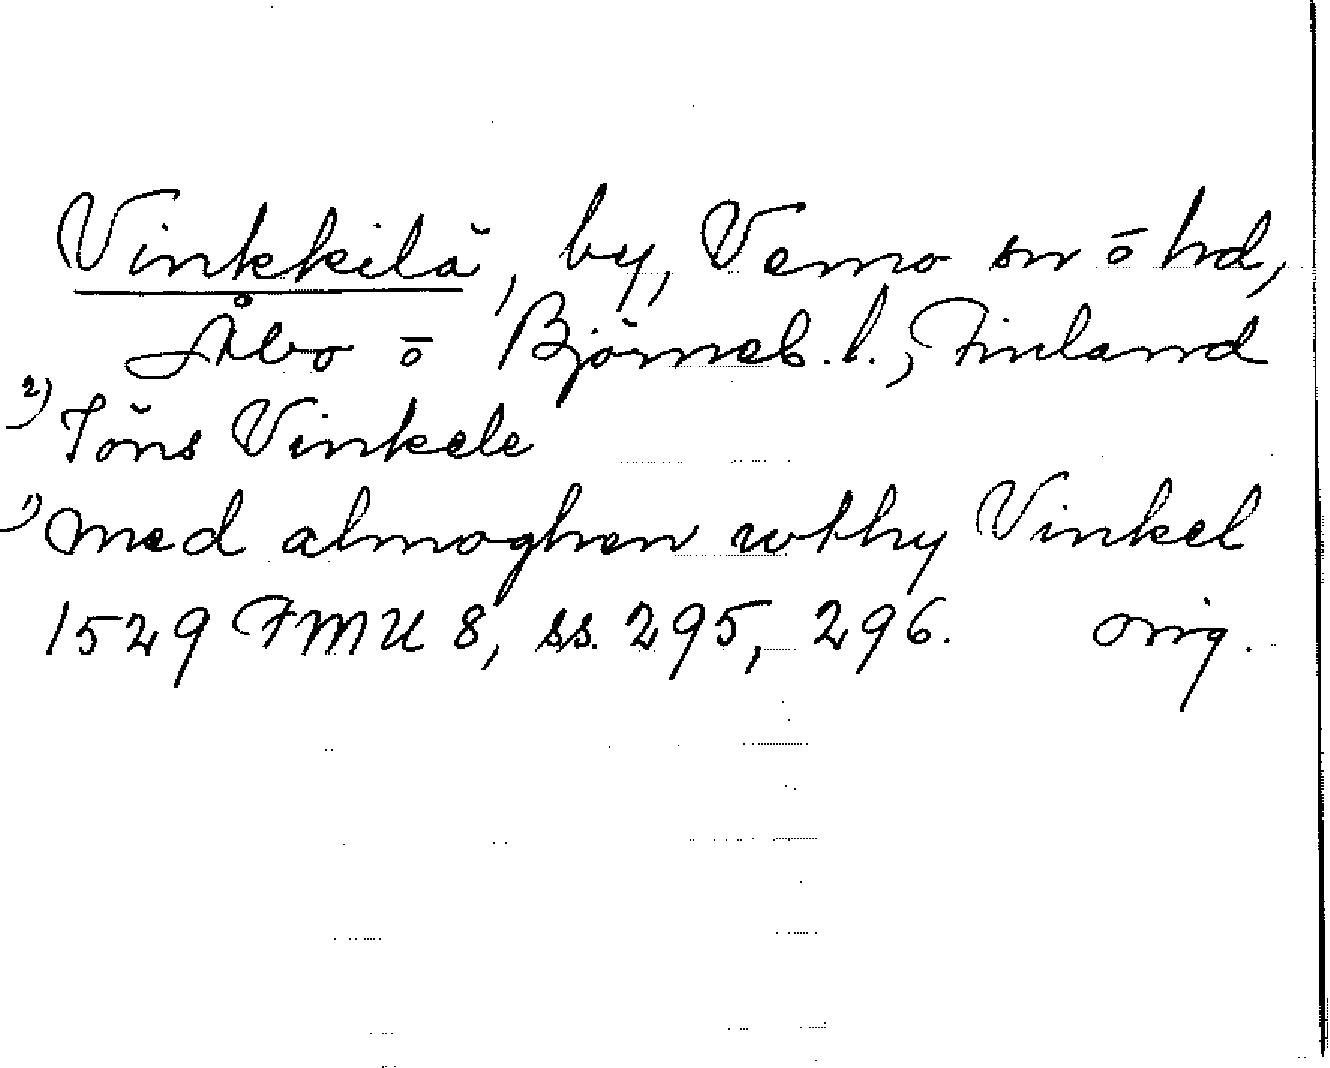 Vinkkilä, by, Vemo sn o hd,
Åbo o Björneb. l., Finland
2) Jöns Vinkele
1) med almoghen wthy Vinkel
1529 FMU 8, ss. 295, 296. orig.